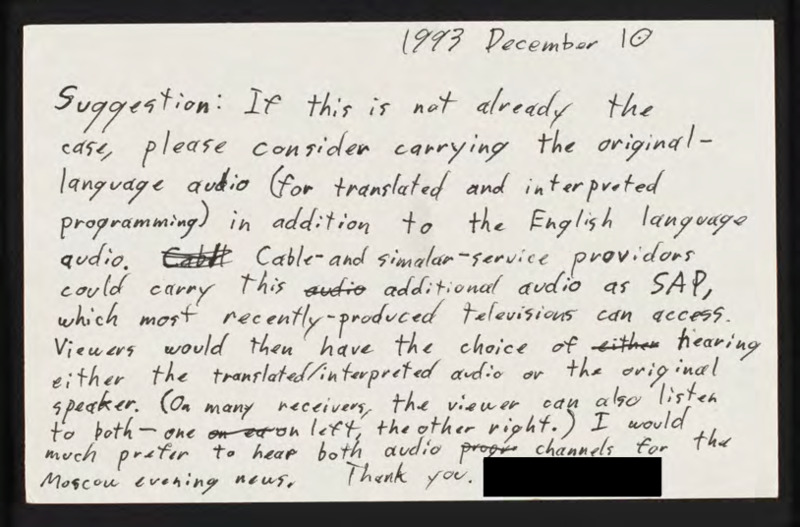 1993 December 10
Suggestion: If this is not already the
case, please consider carrying the original-
language audio (for translated and interpreted
programming) in addition to the English language
audio. Cabll Cable-and simalar-service providors
could carry this audio additional audio as SAP,
which most recently-produced televisions can access.
Viewers would then have the choice of either hearing
either the translated/interpreted audio or the original
speaker. (On many receivers, the viewer can also listen
to both—one on left, the other right.) I would
much prefer to hear both audio progr channels for the
Moscow evening news. Thank you.